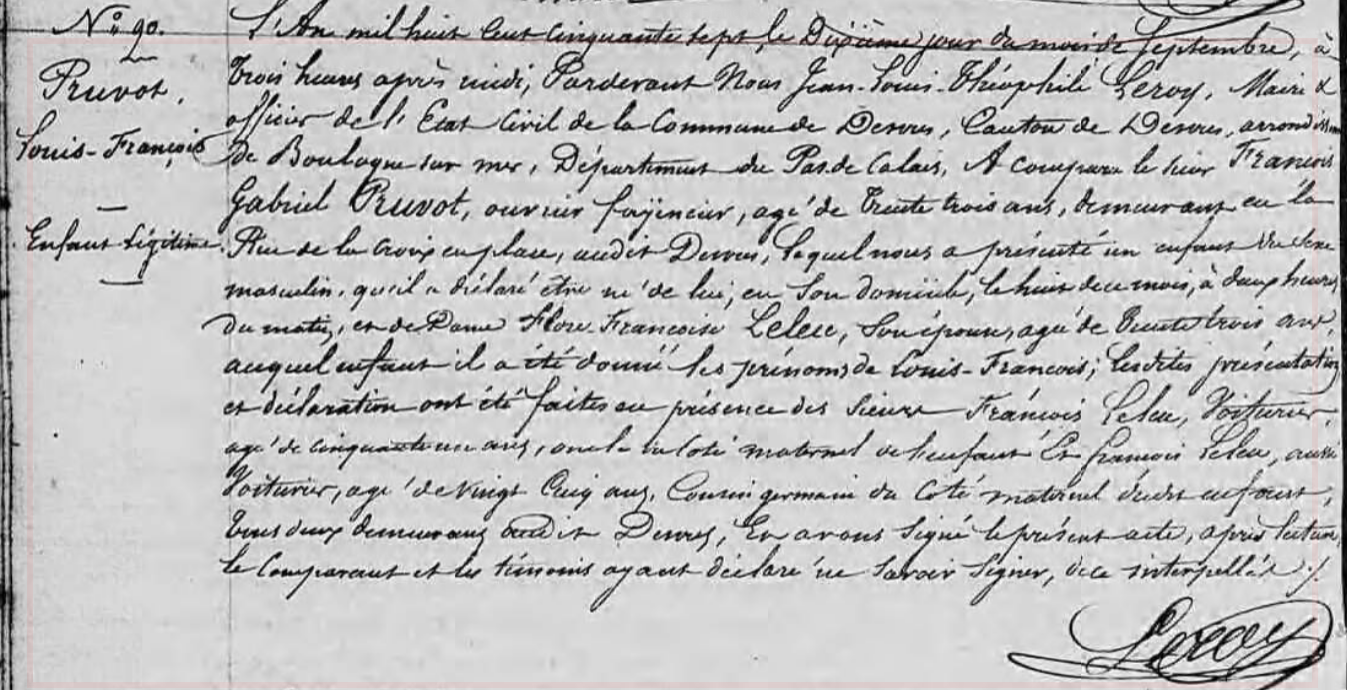 N.º 90.
Pruvot,
Louis-François
Enfant Légitime.
L'An mil huit Cent Cinquante sept, le Dixième jour du mois de Septembre, à
Trois heures après midi, Pardevant Nous Jean-Louis-Théophile Leroy, Maire &
officier de l'Etat Civil de la Commune de Desvres, Canton de Desvres, arrondissem
de Boulogne sur mer, Département du Pas de Calais, A comparu le sieur François
Gabriel Pruvot, ouvrier fayencier, agé de Trente trois ans, demeurant en la
Rue de la croix en place, audit Desvres, Lequel nous a présenté un enfant du Sexe
masculin, qu'il a déclaré être né de lui, en Son domicile, le huit de ce mois, à deux heures
du matin, et de Dame Flore Françoise Leleu, Son épouse, agée de Trente trois ans,
auquel enfant il a été donné les prénoms de Louis-François; lesdites présentation
et déclaration ont été faites en présence des Sieurs François Leleu, Voiturier,
agé de cinquante un ans, oncle du Coté maternel de l'enfant Et françois Leleu, aussi
Voiturier, agé de Vingt Cinq ans, Cousin germain du Coté maternel dudit enfant;
Tous deux demeurans audit Desvres, Et avons Signé le présent acte, après lecture,
le Comparant et les témoins ayant déclaré ne Savoir Signer, de ce interpellés ./.
Leroy